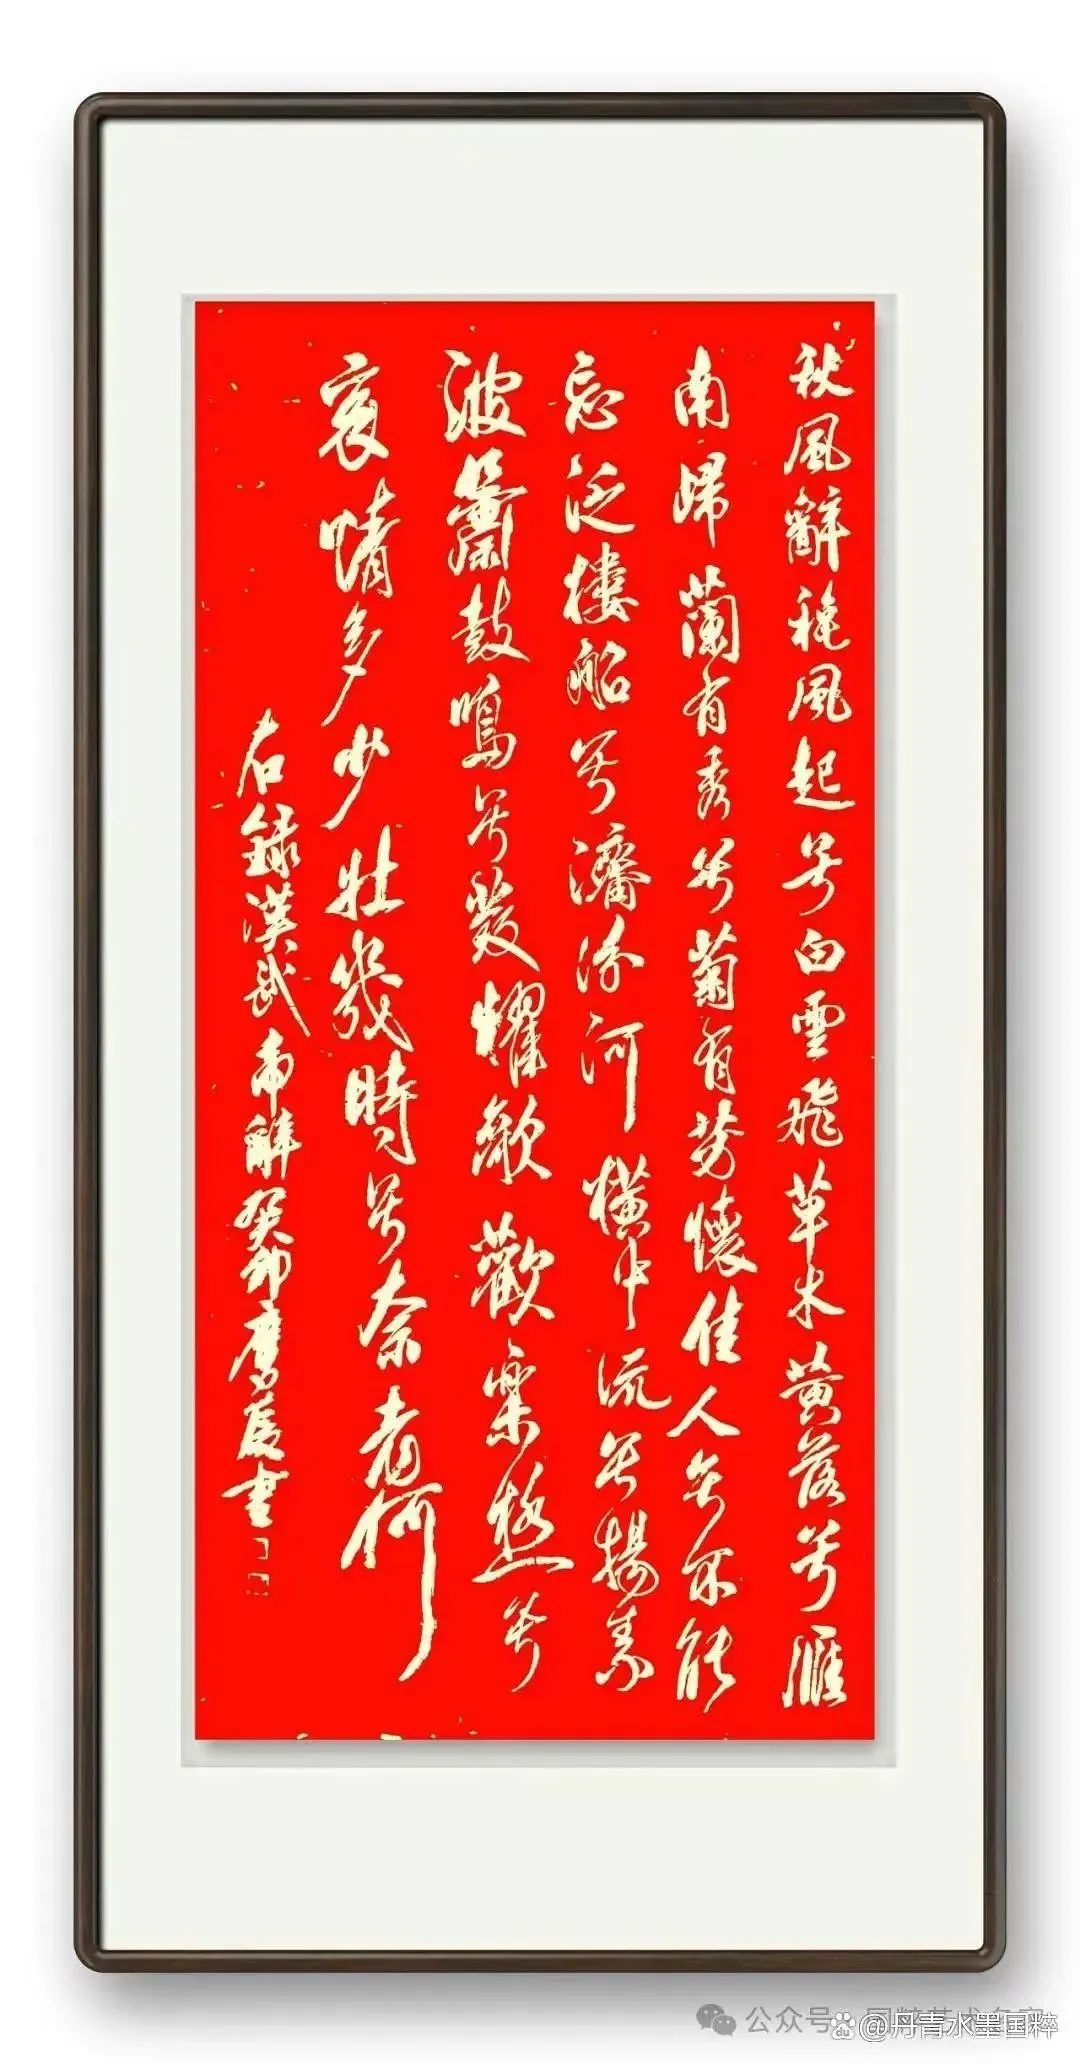 秋風辭穐風起兮白雲飛草木黄落兮雁
南歸蘭有秀兮菊有芳懷佳人兮不能
忘泛樓船兮濟汾河橫中流兮揚素
波簫鼓鳴兮發耀歌歡樂極兮
哀情多少壯幾時兮奈老何
右録漢武帝辭癸卯廣辰書
公众号
@丹青水墨国粹